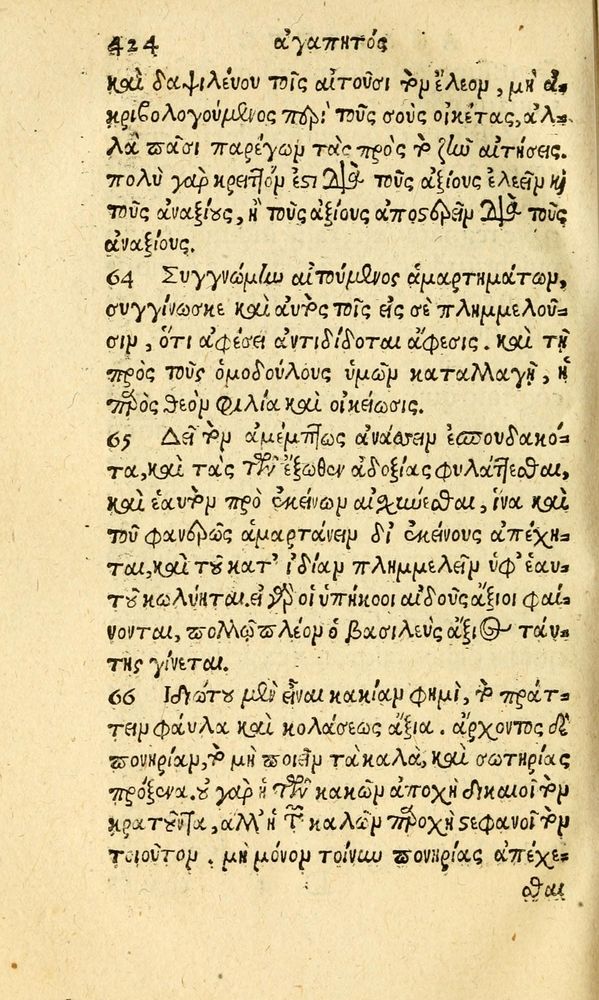 424 ἀγαπητός
καὶ δαψιλένου τοῖς αἰτοῦσι τὸν ἔλεον, μὴ ἀ-
κριβολογούμενος περὶ τοὺς σοὺς οἰκέτας, ἀλ-
λὰ πᾶσι παρέχων τὰς πρὸς τὸ ζῶν αἰτήσεις.
πολὺ γὰρ κρεῖττόν ἐστι διὰ τοὺς ἀξίους ἐλεεῖν καὶ
τοὺς ἀναξίους, ἢ τοὺς ἀξίους ἀποστερεῖν διὰ τοὺς
ἀναξίους.
64 Συγγνώμην αἰτούμενος ἁμαρτημάτων,
συγγίνωσκε καὶ αὐτὸς τοῖς εἰς σὲ πλημμελοῦ-
σιν, ὅτι ἀφέσει ἀντιδίδοται ἄφεσις. καὶ τῇ
πρὸς τοὺς ὁμοδούλους ὑμῶν καταλλαγῇ, ἡ
πρὸς θεὸν φιλία καὶ οἰκείωσις.
65 Δεῖ τὸν ἀμέμπτως ἀνάσσειν ἐσπουδακό-
τα, καὶ τὰς τῶν ἔξωθεν ἀδοξίας φυλάττεσθαι,
καὶ ἑαυτὸν πρὸ ἐκείνων αἰσχύνεσθαι, ἵνα καὶ
τοῦ φανερῶς ἁμαρτάνειν δι ἐκείνους ἀπέχη-
ται, καὶ τοῦ κατ’ ἰδίαν πλημμελεῖν ὑφ’ ἑαυ-
τοῦ κωλύηται. εἰ γὰρ οἱ ὑπήκοοι αἰδοῦς ἄξιοι φαί-
νονται, πολλῷ πλέον ὁ βασιλεὺς ἄξιος ταύ-
της γίνεται.
66 Ἰδιώτου μὲν εἶναι κακίαν φημὶ, τὸ πράτ-
τειν φαῦλα καὶ κολάσεως ἄξια. ἄρχοντος δὲ
πονηρίαν, τὸ μὴ ποιεῖν τὰ καλὰ, καὶ σωτηρίας
πρόξενα. οὐ γὰρ ἡ τῶν κακῶν ἀποχὴ δικαιοῖ τὸν
κρατοῦντα, ἀλλ’ ἡ τῶν καλῶν προχὴ στεφανοῖ τὸν
τοιοῦτον. μὴ μόνον τοίνυν πονηρίας ἀπέχε-
σθαι